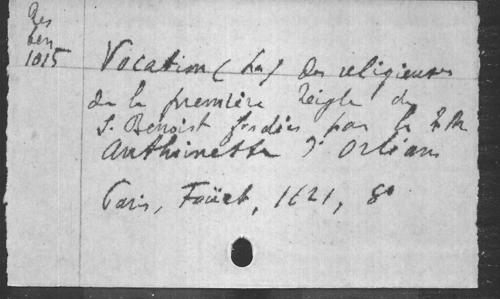 Res
ben
1015
Vocation (La) des religieuses
de la première Reigle de
S. Benoist fondées par la R. M.
Anthoinette d'Orléans
Paris, Foüet, 1621, 8o